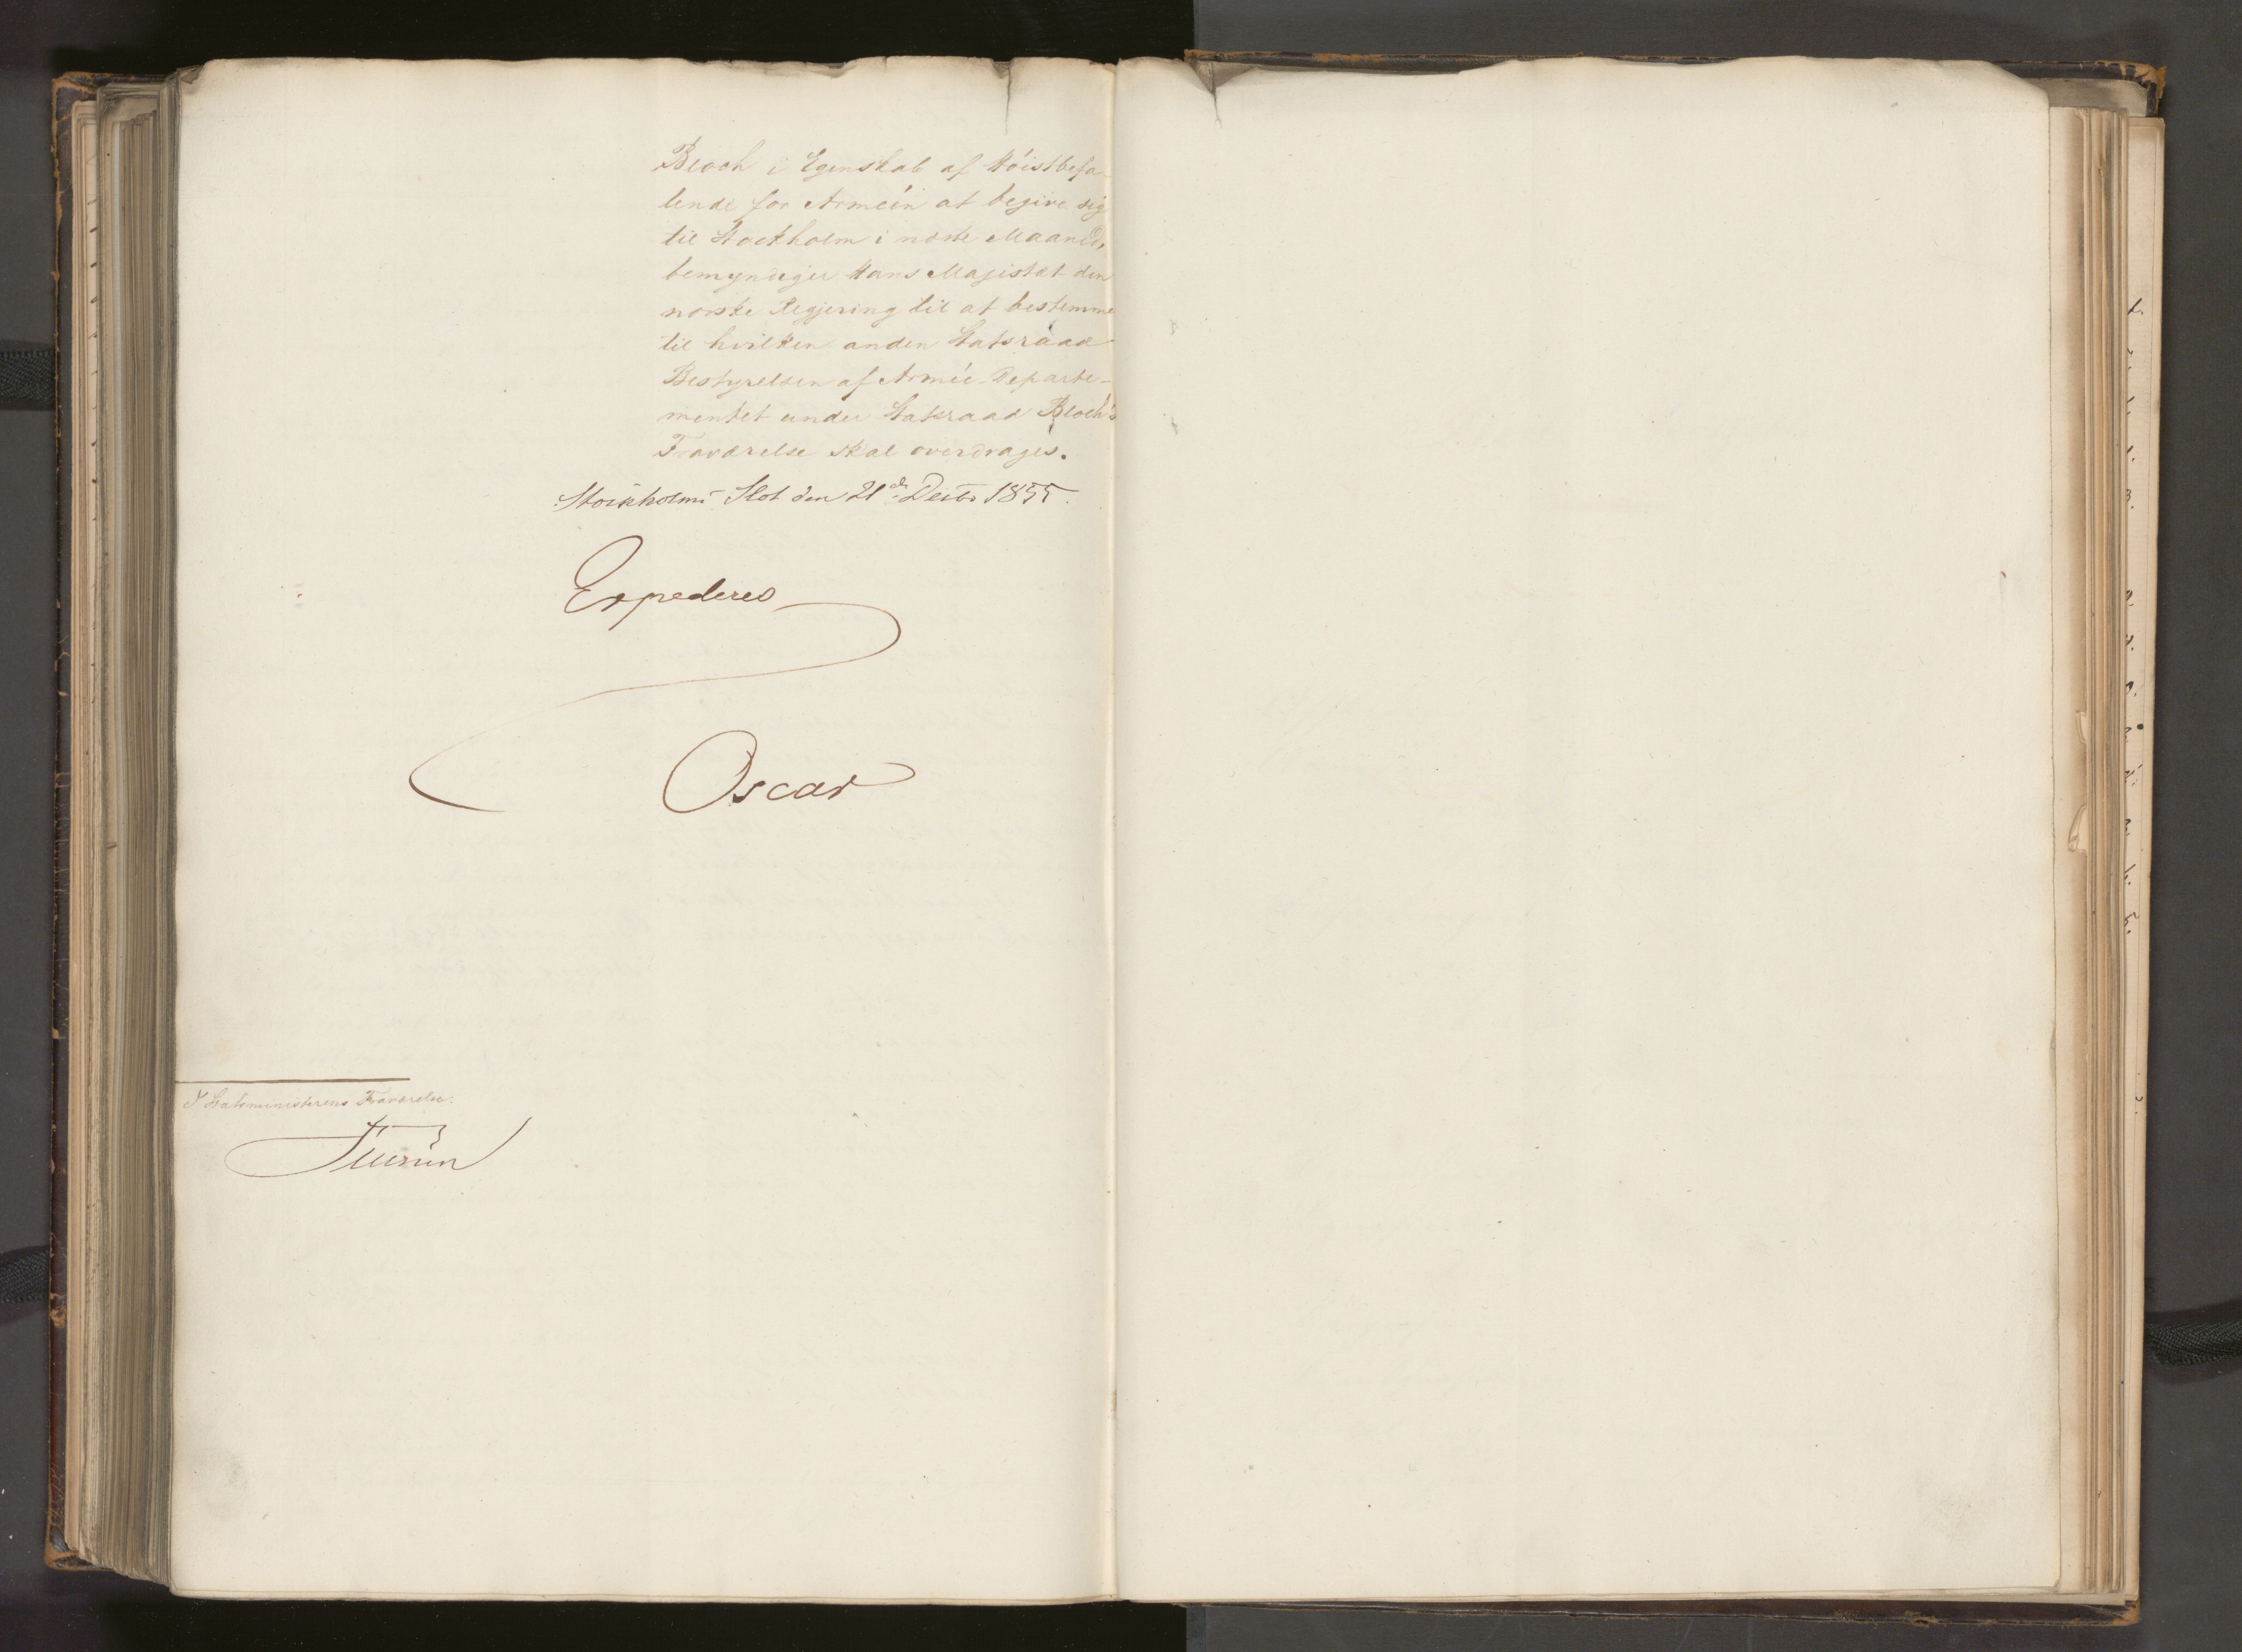 Bloch i Egenskab af Höistbefa-
lende for Arméen at begive sig
til Stockholm i næste Maaned,
bemyndiger Hans Majestæt den
norske Regjering til at bestemme
til hvilken anden Statsraad
Bestyrelsen af Armée-Departe-
mentet under Statsraad Bloch's
Fraværelse skal overdrages.
Stockholms Slot den 21de Decbr 1855.
Expederes
Oscar
I Statsministerens Fraværelse.